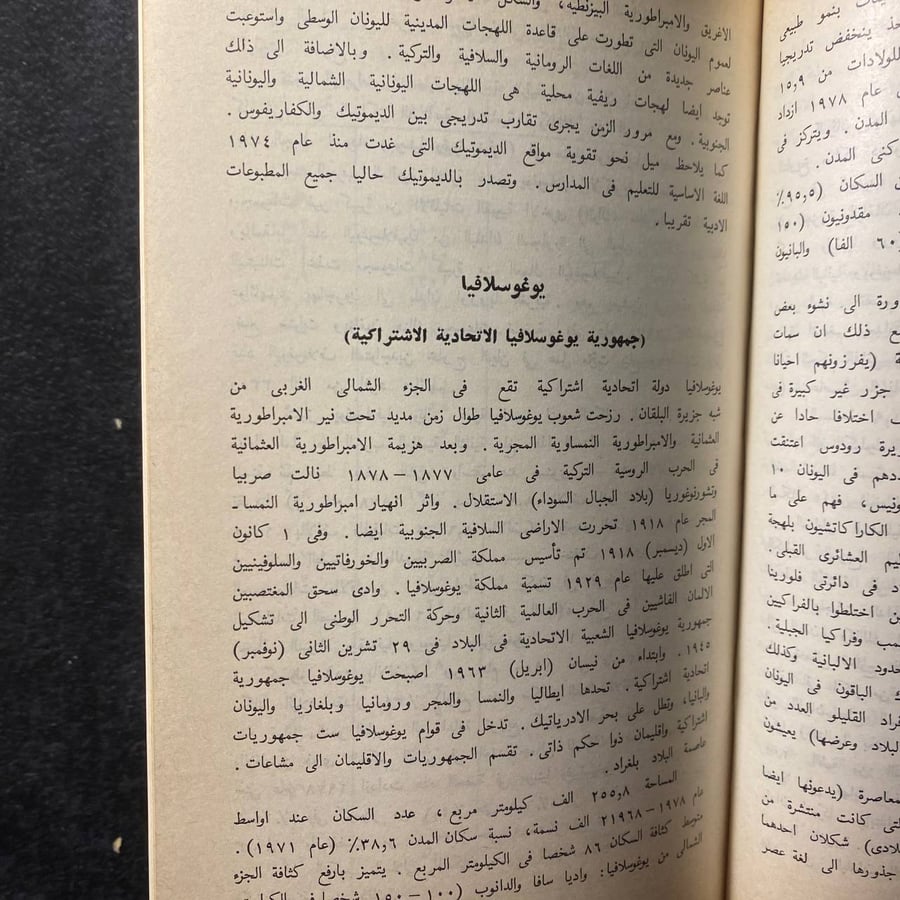 بنمو طبيعى
ينخفض تدريجيا
للولادات من ١٥٫٩
عام ١٩٧٨ ازداد
المدن . ويتركز فى
المدن .
السكان (٩٥٫٥٪
مقدونيون (١٥٠
٦٠ الفا) والبانيون
الى نشوء بعض
ذلك ان سمات
(يفرزونهم احيانا
جزر غير كبيرة فى
اختلافا حادا عن
رودوس اعتنقت
فى اليونان ١٠
فهم على ما
الكاراكاتشيون بلهجة
العشائرى القبلى .
فى دائرتى فلورينا
اختلطوا بالفراكيين
وفراكيا الجبلية .
الالبانية وكذلك
الباقون فى اليونان
القليلو العدد من
البلاد وعرضها) يعيشون
(يدعونها ايضا
كانت منتشرة من
شكلان احدهما
جذورها الى لغة عصر
الاغريق والامبراطورية البيزنطية،
لعموم اليونان التى تطورت على قاعدة اللهجات المدينية لليونان الوسطى واستوعبت
عناصر جديدة من اللغات الرومانية والسلافية والتركية . وبالاضافة الى ذلك
توجد ايضا لهجات ريفية محلية هى اللهجات اليونانية الشمالية واليونانية
الجنوبية . ومع مرور الزمن يجرى تقارب تدريجى بين الديموتيك والكفاريفوس .
كما يلاحظ ميل نحو تقوية مواقع الديموتيك التى غدت منذ عام ١٩٧٤
اللغة الاساسية للتعليم فى المدارس . وتصدر بالديموتيك حاليا جميع المطبوعات
الادبية تقريبا .
يوغوسلافيا
(جمهورية يوغوسلافيا الاتحادية الاشتراكية)
يوغوسلافيا دولة اتحادية اشتراكية تقع فى الجزء الشمالى الغربى من
شبه جزيرة البلقان . رزحت شعوب يوغوسلافيا طوال زمن مديد تحت نير الامبراطورية
العثمانية والامبراطورية النمساوية المجرية . وبعد هزيمة الامبراطورية العثمانية
فى الحرب الروسية التركية فى عامى ١٨٧٧ – ١٨٧٨ نالت صربيا
وتشورنوغوريا (بلاد الجبال السوداء) الاستقلال . واثر انهيار امبراطورية النمسا ـ
المجر عام ١٩١٨ تحررت الاراضى السلافية الجنوبية ايضا . وفى ١ كانون
الاول (ديسمبر) ١٩١٨ تم تأسيس مملكة الصربيين والخورفاتيين والسلوفينيين
التى اطلق عليها عام ١٩٢٩ تسمية مملكة يوغوسلافيا . وادى سحق المغتصبين
الالمان الفاشيين فى الحرب العالمية الثانية وحركة التحرر الوطنى الى تشكيل
جمهورية يوغوسلافيا الشعبية الاتحادية فى البلاد فى ٢٩ تشرين الثانى (نوفمبر)
١٩٤٥ . وابتداء من نيسان (ابريل) ١٩٦٣ اصبحت يوغوسلافيا جمهورية
اتحادية اشتراكية . تحدها ايطاليا والنمسا والمجر ورومانيا وبلغاريا واليونان
والبانيا، وتطل على بحر الادرياتيك . تدخل فى قوام يوغوسلافيا ست جمهوريات
اشتراكية واقليمان ذوا حكم ذاتى . تقسم الجمهوريات والاقليمان الى مشاعات .
عاصمة البلاد بلغراد .
المساحة ٢٥٥٫٨ الف كيلومتر مربع، عدد السكان عند اواسط
عام ١٩٧٨ – ٢١٩٦٨ الف نسمة، نسبة سكان المدن ٣٨٫٦٪ (عام ١٩٧١) .
متوسط كثافة السكان ٨٦ شخصا فى الكيلومتر المربع . يتميز بارفع كثافة الجزء
الشمالى من يوغوسلافيا: واديا سافا والدانوب (١٠٠ – ١٥٠ شخصا فى